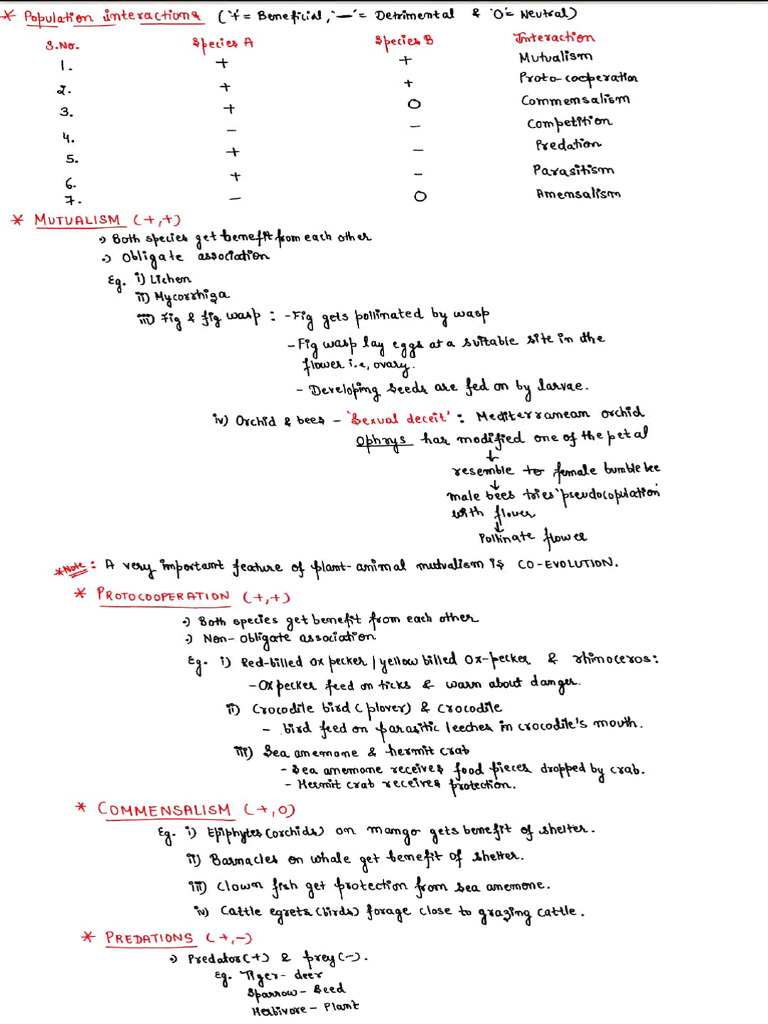 * Population interactions ('+' = Beneficial, '—' = Detrimental & 'O' = Neutral)
S.No. Species A Species B Interaction
1. + + Mutualism
2. + + Proto-cooperation
3. + O Commensalism
4. − − Competition
5. + − Predation
6. + − Parasitism
7. − O Amensalism
* MUTUALISM (+,+)
·) Both species get benefit from each other
·) Obligate association
Eg. i) Lichen
ii) Mycorrhiza
iii) Fig & fig wasp : - Fig gets pollinated by wasp
- Fig wasp lay eggs at a suitable site in the
flower i.e, ovary.
- Developing seeds are fed on by larvae.
iv) Orchid & bees - 'Sexual deceit' : Mediterranean orchid
Ophrys has modified one of the petal
↓
resemble to female bumble bee
↓
male bees tries 'pseudocopulation'
with flower
↓
Pollinate flower
*Note : A very important feature of plant-animal mutualism is CO-EVOLUTION.
* PROTOCOOPERATION (+,+)
·) Both species get benefit from each other
·) Non-obligate association
Eg. i) Red-billed ox pecker / yellow billed Ox-pecker & rhinoceros :
- Ox pecker feed on ticks & warn about danger.
ii) Crocodile bird (plover) & crocodile
- bird feed on parasitic leeches in crocodile's mouth.
iii) Sea anemone & hermit crab
- Sea anemone receives food pieces dropped by crab.
- Hermit crab receives protection.
* COMMENSALISM (+,0)
Eg. i) Epiphytes (orchids) on mango gets benefit of shelter.
ii) Barnacles on whale get benefit of shelter.
iii) Clown fish get protection from sea anemone.
iv) Cattle egrets (birds) forage close to grazing cattle.
* PREDATIONS (+,−)
·) Predator (+) & prey (−).
Eg. Tiger - deer
Sparrow - Seed
Herbivore - Plant